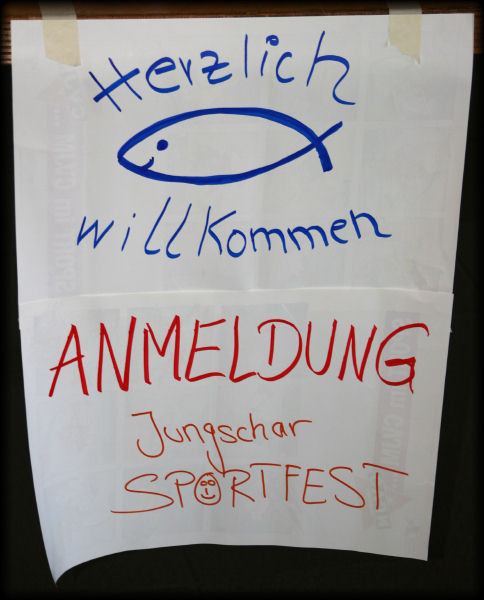 Herzlich
willkommen
ANMELDUNG
Jungschar
SPORTFEST